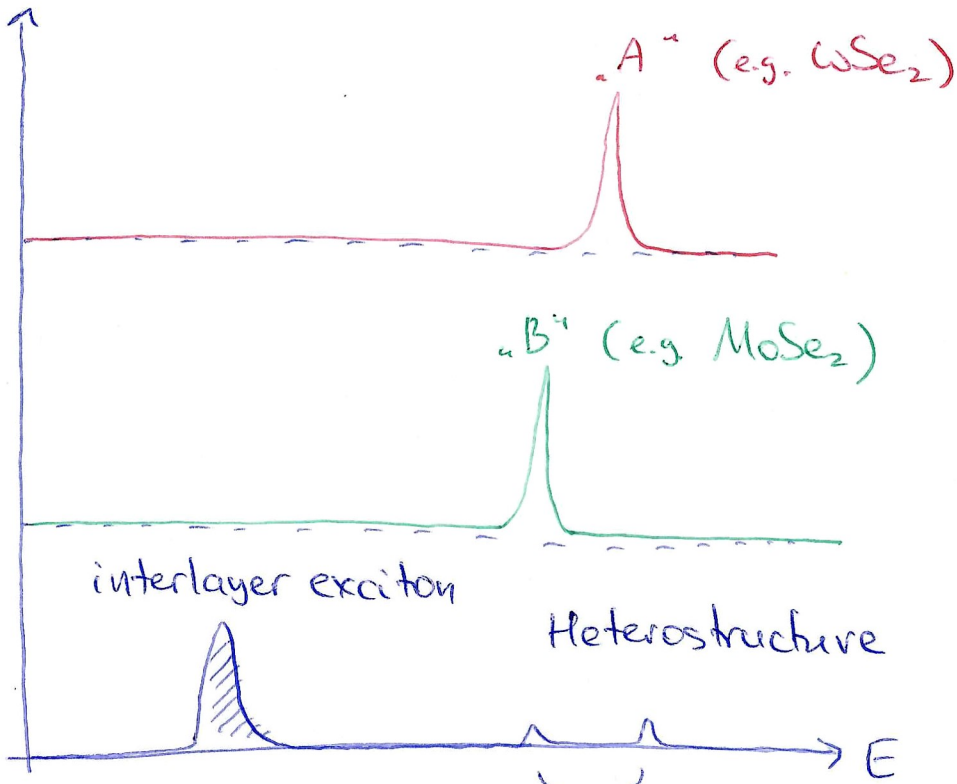 „A“ (e.g. WSe₂)
„B“ (e.g. MoSe₂)
interlayer exciton
Heterostructure
E